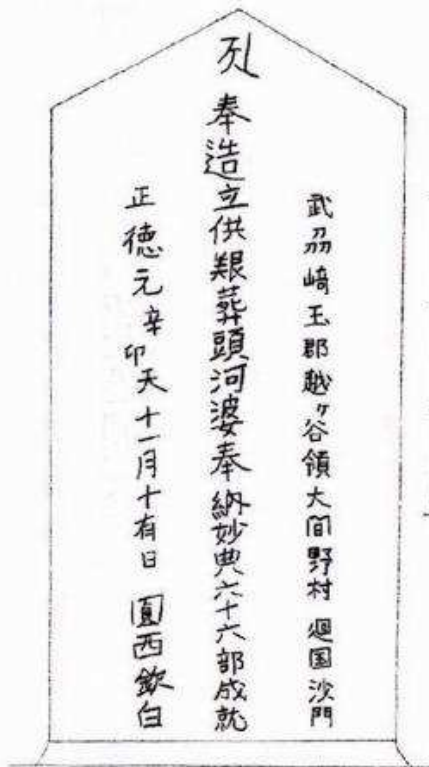 武刕崎玉郡越ヶ谷領大間野村 廻国沙門
奉造立供艱葬頭河婆奉納妙典六十六部成就
正徳元辛卯天十一月十有日 圓西欽白